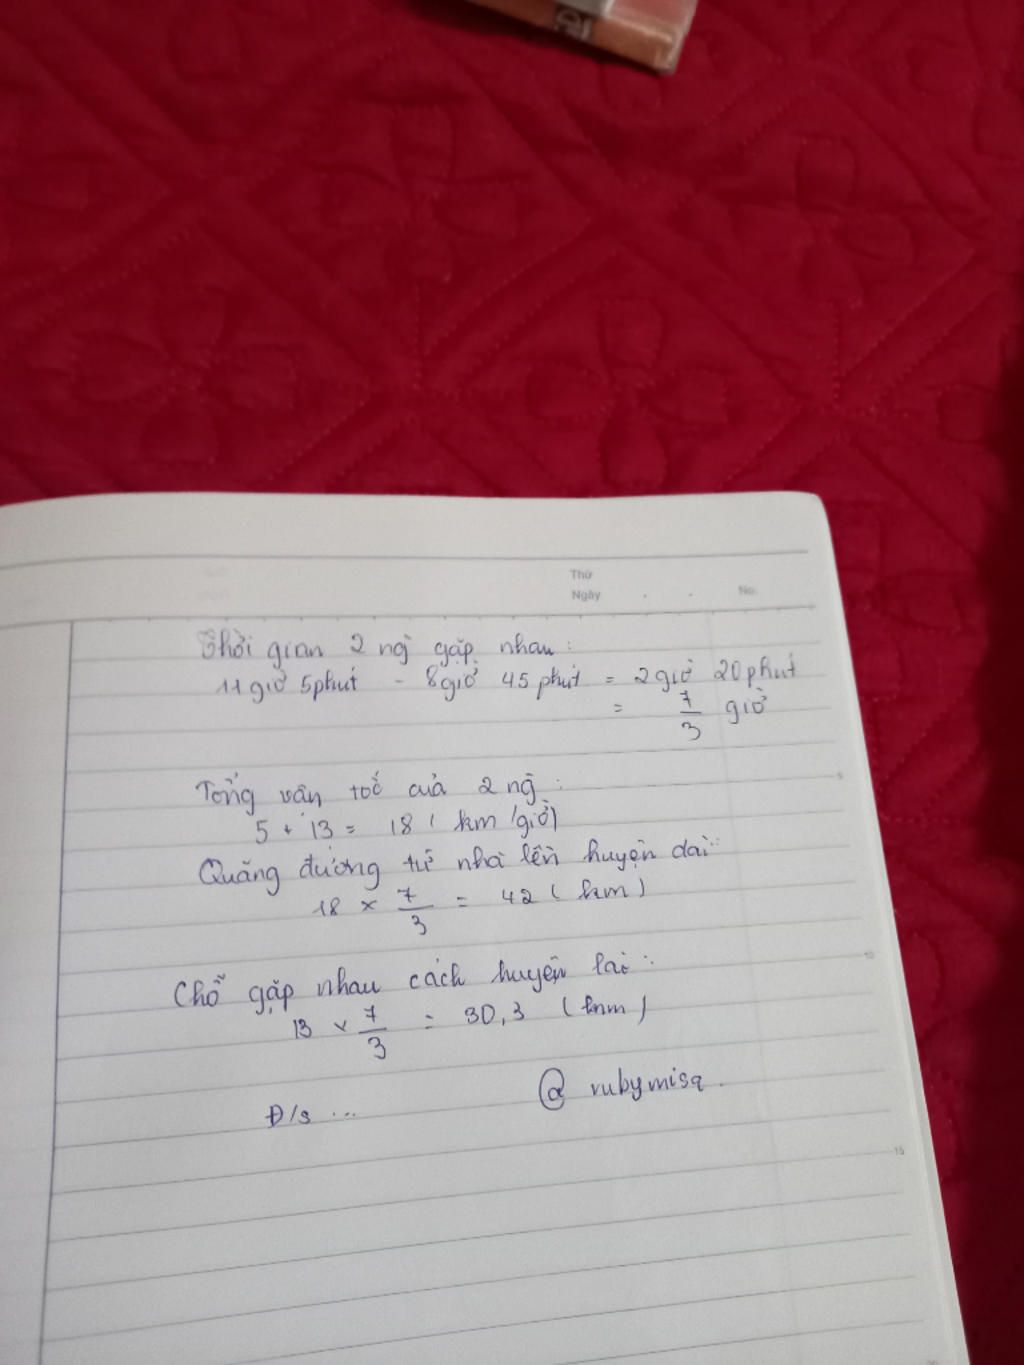 Thứ
Ngày
No.
Thời gian 2 ng̀ gặp nhau:
11 giờ 5phút - 8giờ 45 phút = 2 giờ 20 phút
= 7/3 giờ
5
Tổng vân tốc của 2 ng̀:
5 + 13 = 18 ( km/giờ)
Quãng đường từ nhà lên huyện dài:
18 × 7/3 = 42 ( km)
10
Chỗ gặp nhau cách huyện lài:
13 × 7/3 = 30,3 (km)
@ rubymisa.
Đ/s ...
15